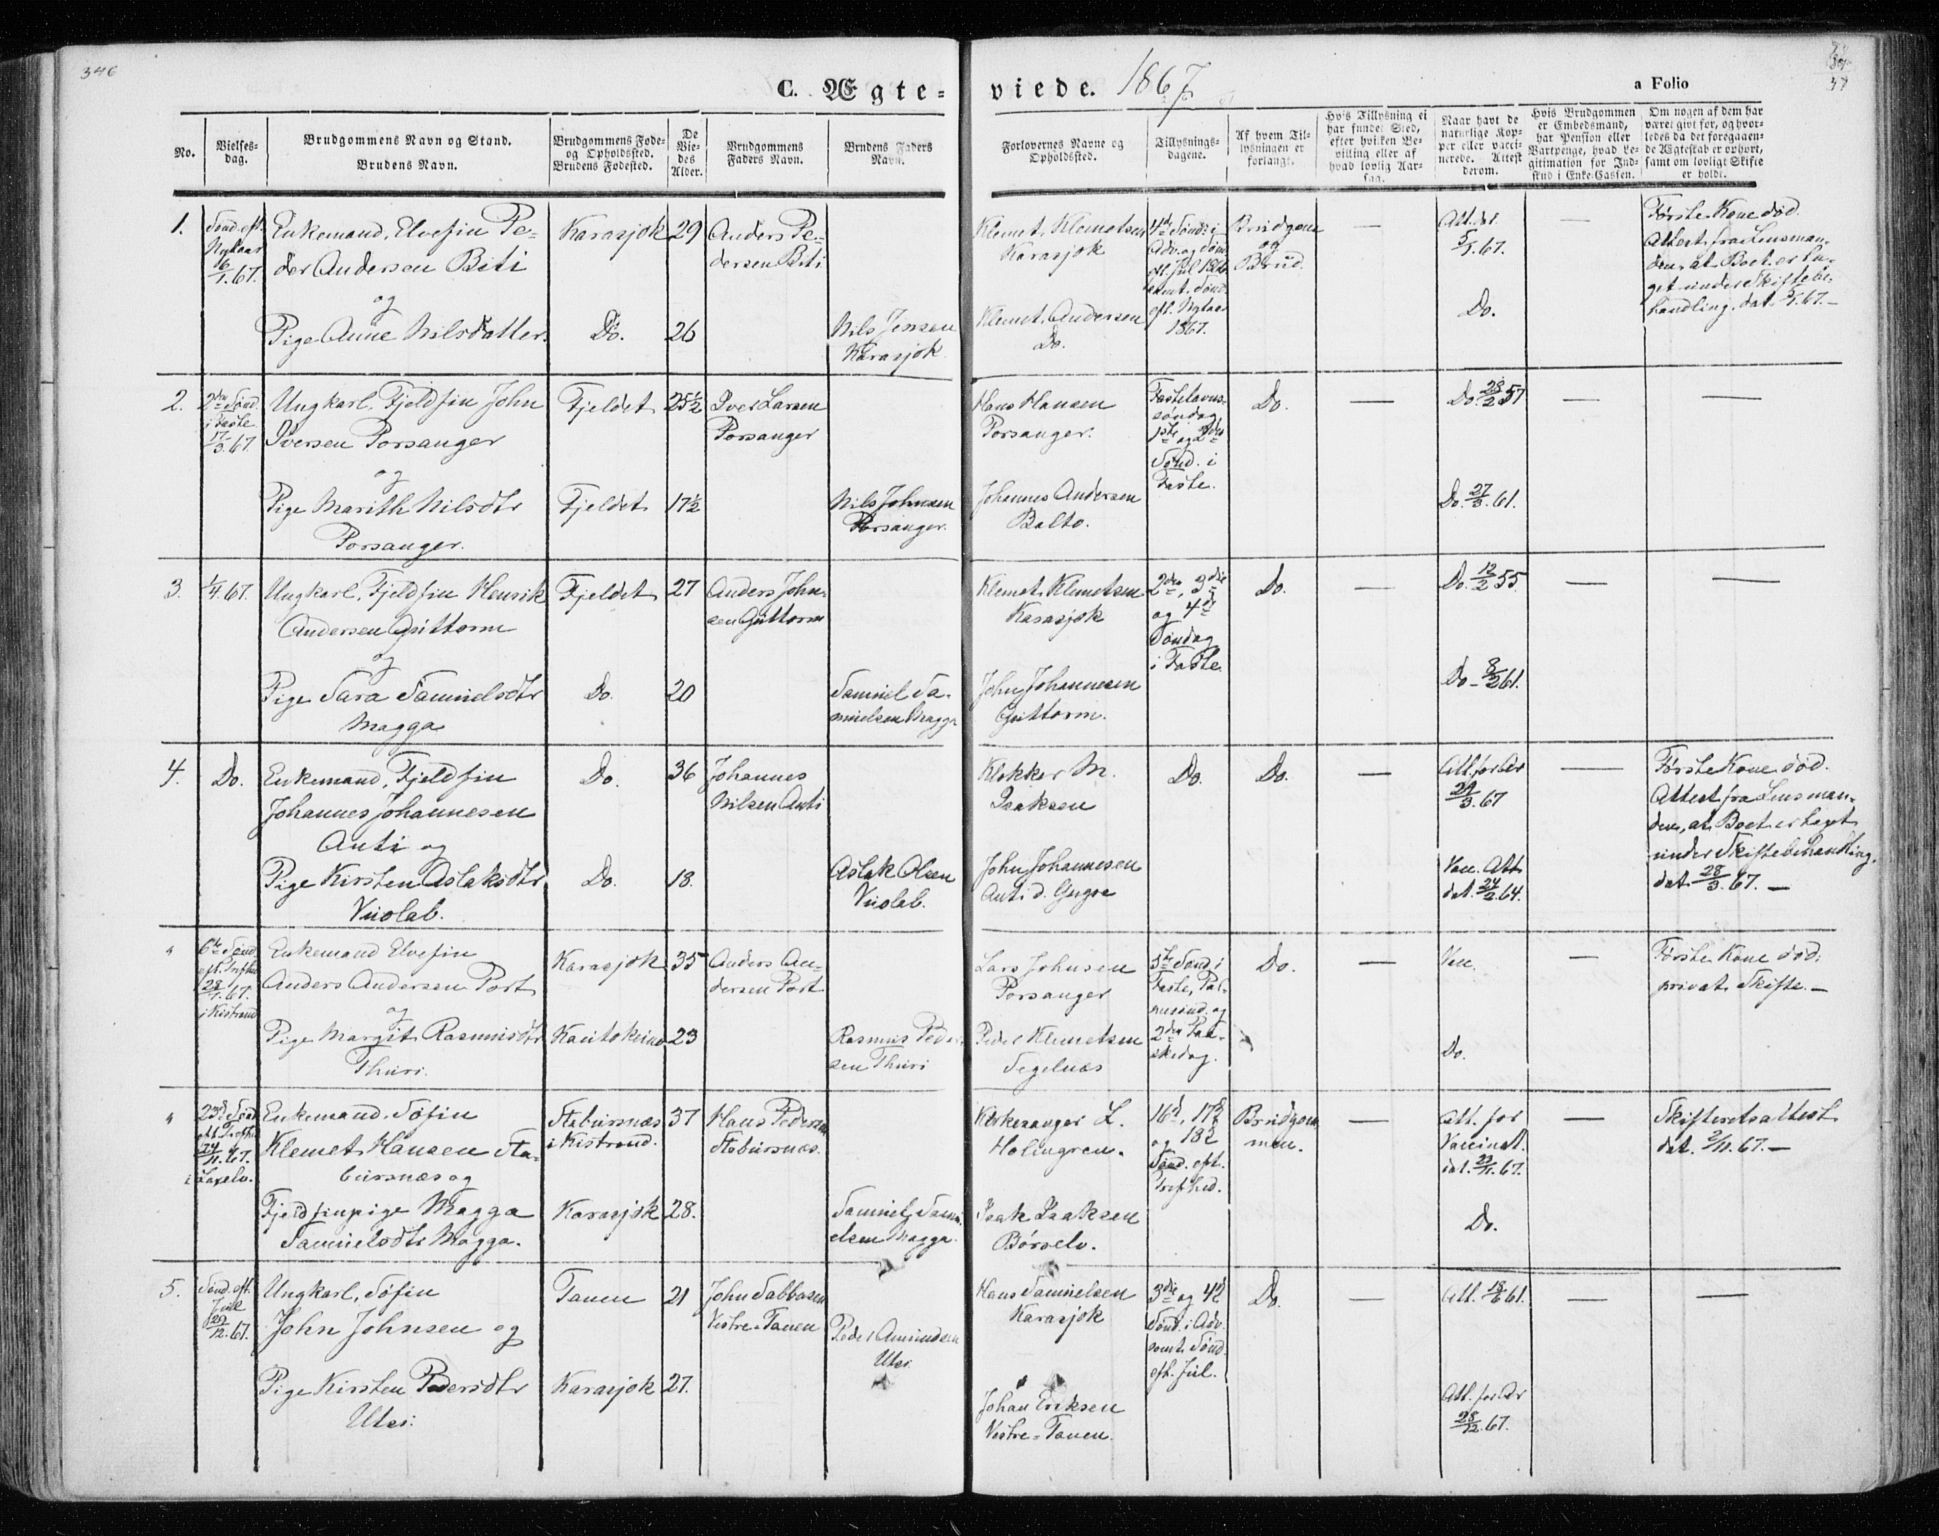 346
C. Ægte-
viede. 1867
a Folio
34
No.
Vielses-
dag.
Brudgommens Navn og Stand.
Brudens Navn.
Brudgommens Føde-
og Opholdssted.
Brudens Fødested.
De
Vie-
des
Alder.
Brudgommens
Faders Navn.
Brudens Faders
Navn.
Forlovernes Navne og
Opholdssted.
Tillysnings-
dagene.
Af hvem Til-
lysningen er
forlangt.
Hvis Tillysning ei
har fundet Sted,
efter hvilken Be-
villing eller af
hvad lovlig Aar-
sag.
Naar havt de
naturlige Kop-
per eller vacci-
nerede. Attest
derom.
Hvis Brudgommen
er Embedsmand,
har Pension eller
Vartpenge, hvad Le-
gitimation for Ind-
skud i Enke-Cassen.
Om nogen af dem har
været givt før, og hvor-
ledes da det foregaaen-
de Ægteskab er ophørt,
samt om lovligt Skifte
er holdt.
1.
Sønd. eft.
Nytaar
6/1.67.
Enkemand, Elvefin Pe-
der Andersen Biti
og
Pige Anne Nilsdatter.
Karasjok
Do.
29
26
Anders Pe-
dersen Biti
Nils Jensen
Karasjok
Klemet Klemetsen
Karasjok
Klemet Andersen
Do.
4de Sønd: i
Adv. og Sønd.
eft. Jul 1866
samt Sønd.
eft. Nytaar
1867.
Brudgom
og
Brud.
—
Att. dat
5/1.67.
Do.
—
Første Kone død.
Attest fra Lensman-
den, at Boet er ta-
get under Skiftebe-
handling, dat. 5/1.67.—
2.
2den Sønd.
i Faste
17/3.67.
Ungkarl, Fjeldfin John
Iversen Porsanger
og
Pige Marith Nilsdtr
Porsanger.
Fjeldet
Fjeldet
25½
17½
Iver Larsen
Porsanger
Nils Johnsen
Porsanger.
Hans Hansen
Porsanger.
Johannes Andersen
Balto.
Fastelavns-
søndag,
1ste og 2den
Sønd. i
Faste.
Do.
—
Do. 28/2 57
Do. 27/3.61.
—
—
3.
1/4.67.
Ungkarl, Fjeldfin Henrik
Andersen Guttorm
og
Pige Sara Samuelsdtr
Magga
Fjeldet
Do.
27
20
Anders John-
sen Guttorm
Samuel Sa-
muelsen Magga
Klemet Klemetsen
Karasjok
John Johannesen
Guttorm.
2den, 3die
og 4de
Søndag
i Faste
Do.
—
Do. 12/2 55.
Do. 8/2 61.
—
—
4.
Do.
Enkemand, Fjeldfin
Johannes Johannesen
Anti og
Pige Kirsten Aslaksdtr
Vuolab.
Do.
Do.
36
18.
Johannes
Nilsen Anti
Aslak Olsen
Vuolab.
Klokker M.
Isaksen
John Johannesen
Anti d. Yngre
Do.
Do.
—
Att. for Ar
29/3.67
Vacc. Att.
dat. 24/2 64.
—
Første Kone død.
Attest fra Lensman-
den, at Boet er taget
under Skiftebehandling,
dat. 28/3.67.—
"
6te Sønd.
eft. Trefhd.
28/7.67.
i Kistrand
Enkemand Elvefin
Anders Andersen Port
og
Pige Margit Rasmusdtr
Thuri.
Karasjok
Kautokeino
35
23
Anders An-
dersen Port
Rasmus Peder-
sen Thuri
Lars Johnsen
Porsanger
Peder Klemetsen
Segelnæs
5te Sønd. i
Faste, Pal-
mesønd. og
2den Paa-
skedag.
Do.
—
Vacc.
Do.
—
Første Kone død.
privat Skifte.—
"
23de Sønd.
eft. Trefhd.
24/11.67.
i Laxelv.
Enkemand Søfin
Klemet Hansen Sta-
bursnæs og
Fjeldfinpige Magga
Samuelsdtr Magga.
Stabursnæs
i Kistrand.
Karasjok
37
28.
Hans Pedersen
Stabursnæs.
Samuel Samu-
elsen Magga.
Kirkesanger L.
Holmgren.
Isak Isaksen
Børselv.
16d, 17d
og 18d
Sønd. eft.
Trefhed.
Brudgom-
men.
—
Att. for
Vaccinat.
dat. 23/11.67.
Do.
—
Skifteretsattest
dat. 2/11.67.—
5.
Sønd. eft.
Jul
29/12.67.
Ungkarl, Søfin
John Johnsen og
Pige Kirsten Pedersdtr
Utsi.
Tanen
Karasjok
21
27.
John Sabbasen
Vestre-Tanen
Peder Amundsen
Utsi
Hans Samuelsen
Karasjok
Johan Eriksen
Vestre-Tanen.
3die og 4d
Sønd. i Adv.
samt Sønd.
eft. Jul.
Do.
—
Att. 18/6 61.
Att. for Ar
28/12.67.
—
—